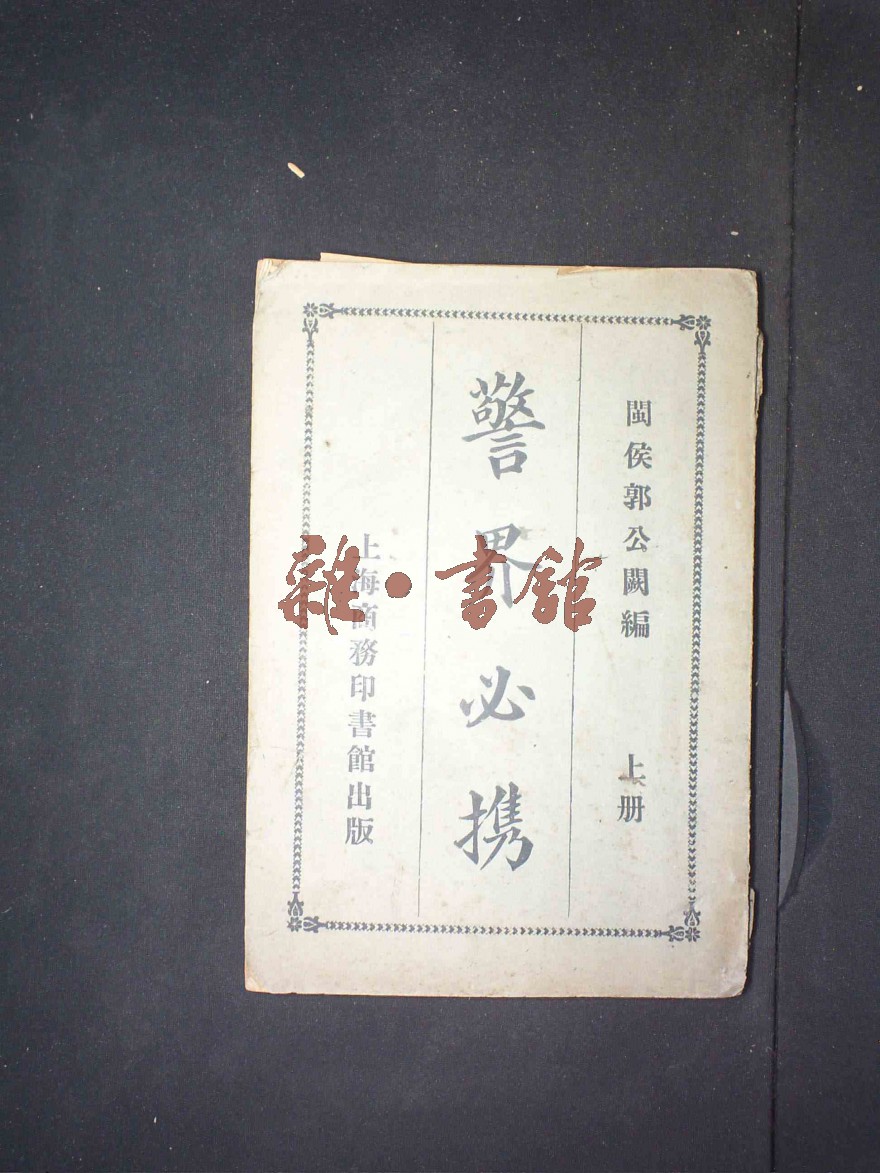 閩侯郭公闕編 上册
警界必携
上海商務印書館出版
雜·書館